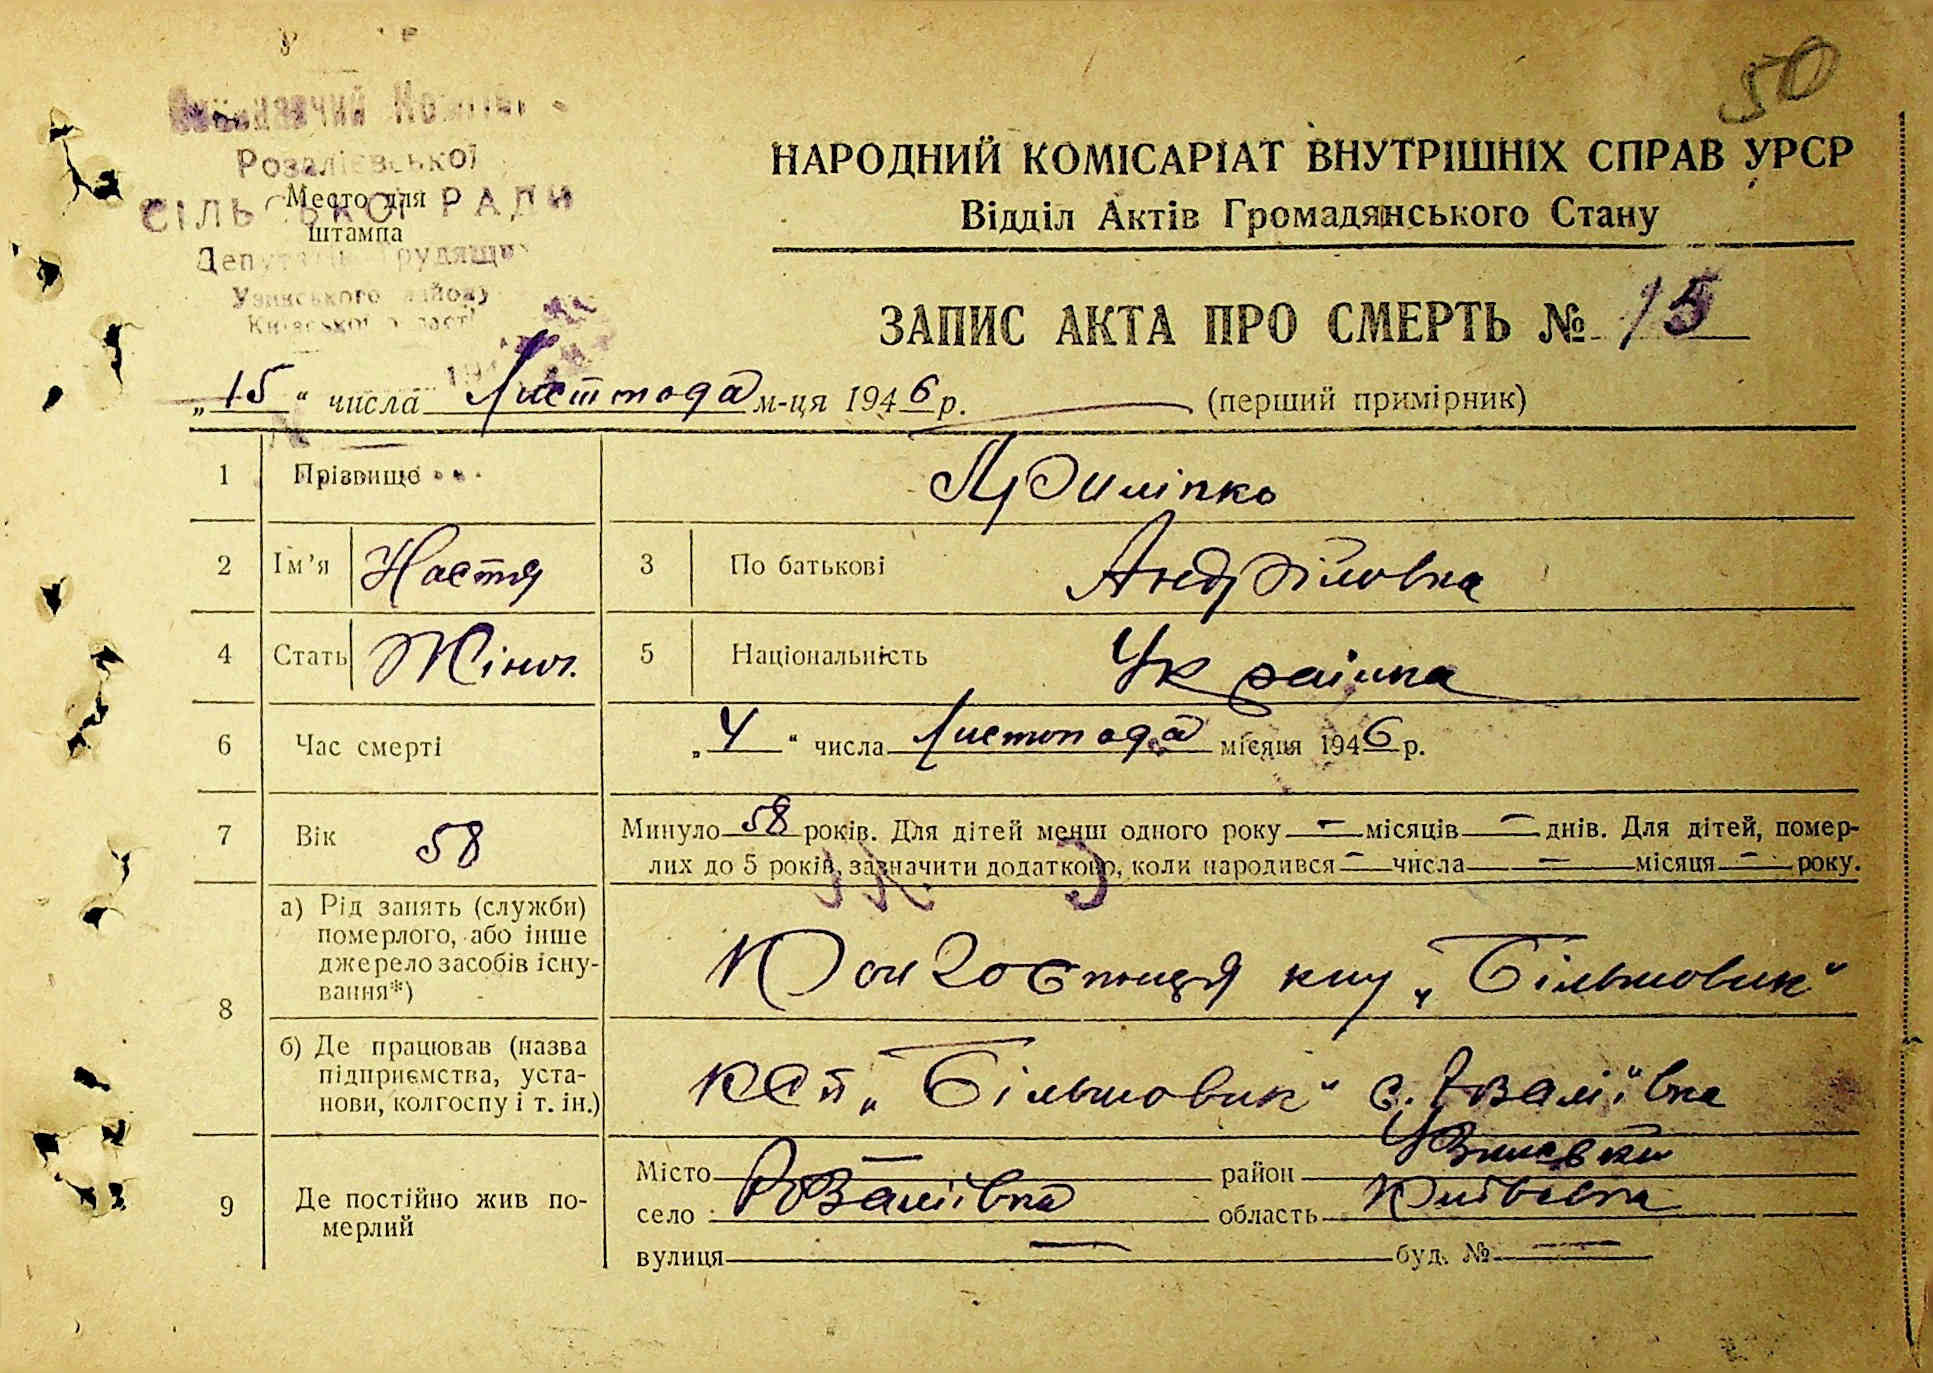 50
Виконавчий Комітет
Розаліевської
СІЛЬСЬКОЇ РАДИ
Место для
штампа
Депутатів Трудящих
Узинського району
Київської області
НАРОДНИЙ КОМІСАРІАТ ВНУТРІШНІХ СПРАВ УРСР
Відділ Актів Громадянського Стану
ЗАПИС АКТА ПРО СМЕРТЬ № 15
„15“ числа Листопада м-ця 1946 р. (перший примірник)
1 Прізвище Пиліпко
2 Ім'я Настя 3 По батькові Андріїовна
4 Стать Жіноч. 5 Національність Українка
6 Час смерті „4“ числа Листопада місяця 1946 р.
7 Вік 58 Минуло 58 років. Для дітей менш одного року — місяців — днів. Для дітей, помер-
лих до 5 років, зазначити додатково, коли народився — числа — місяця — року.
8 а) Рід занять (служби)
померлого, або інше
джерело засобів існу-
вання*)
Колгоспниця „Більшовик“
б) Де працював (назва
підприємства, уста-
нови, колгоспу і т. ін.)
„Більшовик“ с. Розаліївка
9 Де постійно жив по-
мерлий
Місто — район Узинський
село Розаліївка область Київська
вулиця — буд. № —